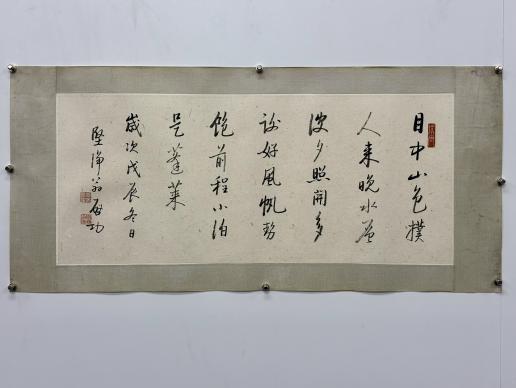 目中山色撲
人来晚水
波夕照開多
謝好風帆勢
飽前程小泊
是蓬萊
歲次戊辰冬日
堅淨翁啟功